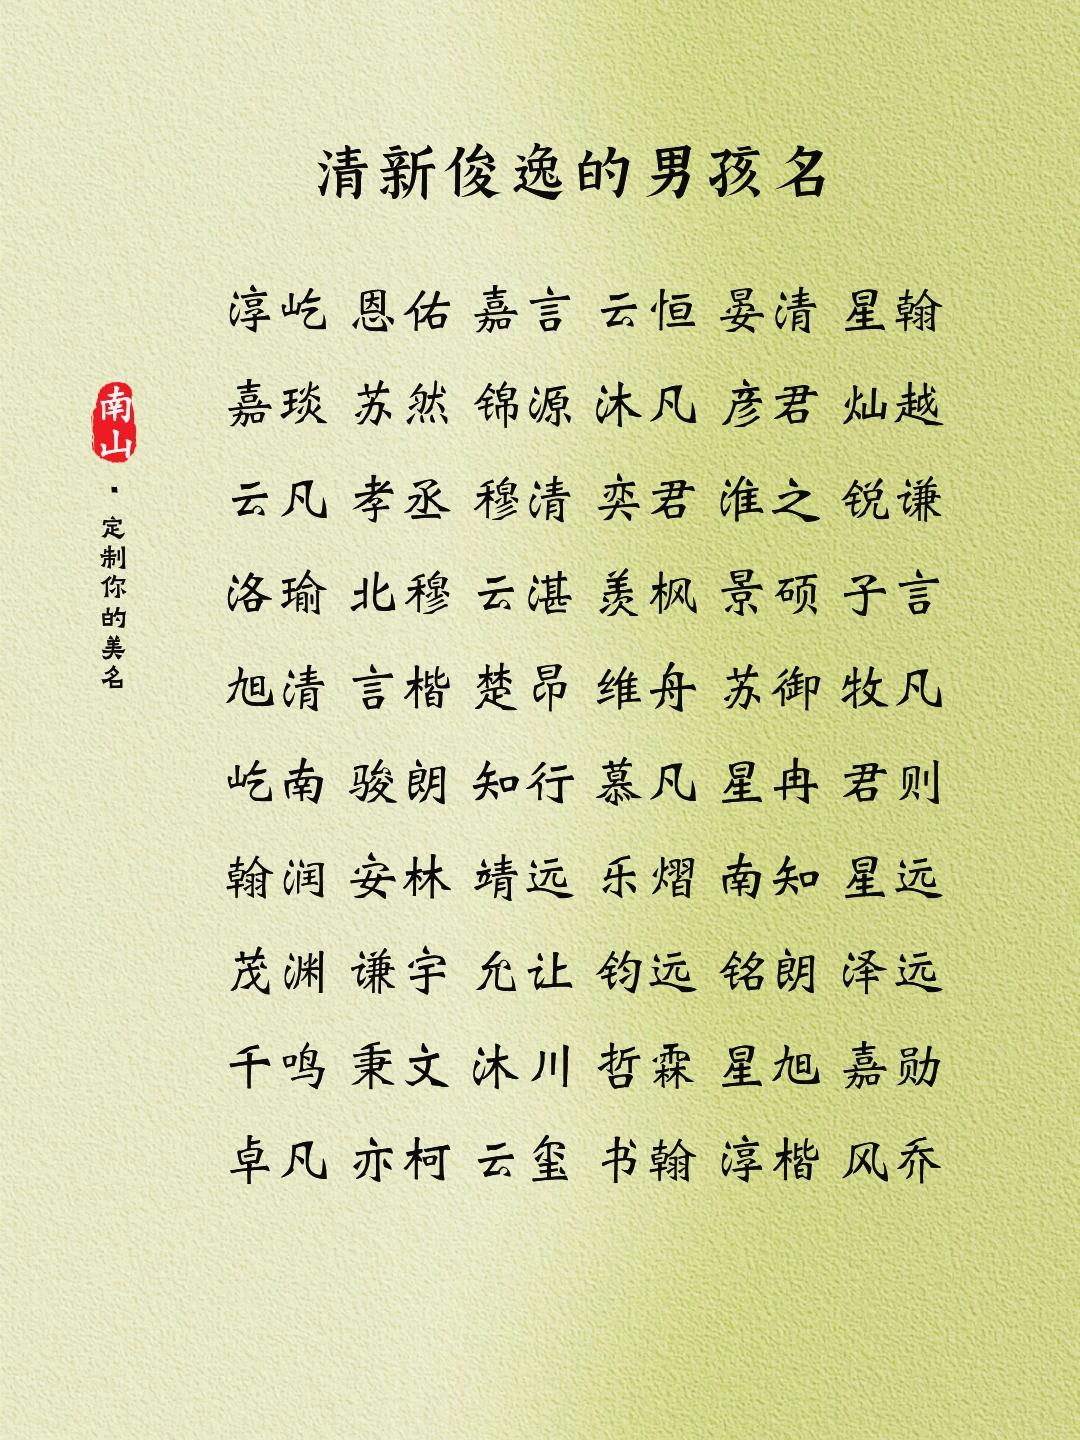 清新俊逸的男孩名
淳屹 恩佑 嘉言 云恒 晏清 星翰
嘉琰 苏然 锦源 沐凡 彦君 灿越
云凡 孝丞 穆清 奕君 淮之 锐谦
洛瑜 北穆 云湛 羡枫 景硕 子言
旭清 言楷 楚昂 维舟 苏御 牧凡
屹南 骏朗 知行 慕凡 星冉 君则
翰润 安林 靖远 乐熠 南知 星远
茂渊 谦宇 允让 钧远 铭朗 泽远
千鸣 秉文 沐川 哲霖 星旭 嘉勋
卓凡 亦柯 云玺 书翰 淳楷 风乔
南山·定制你的美名